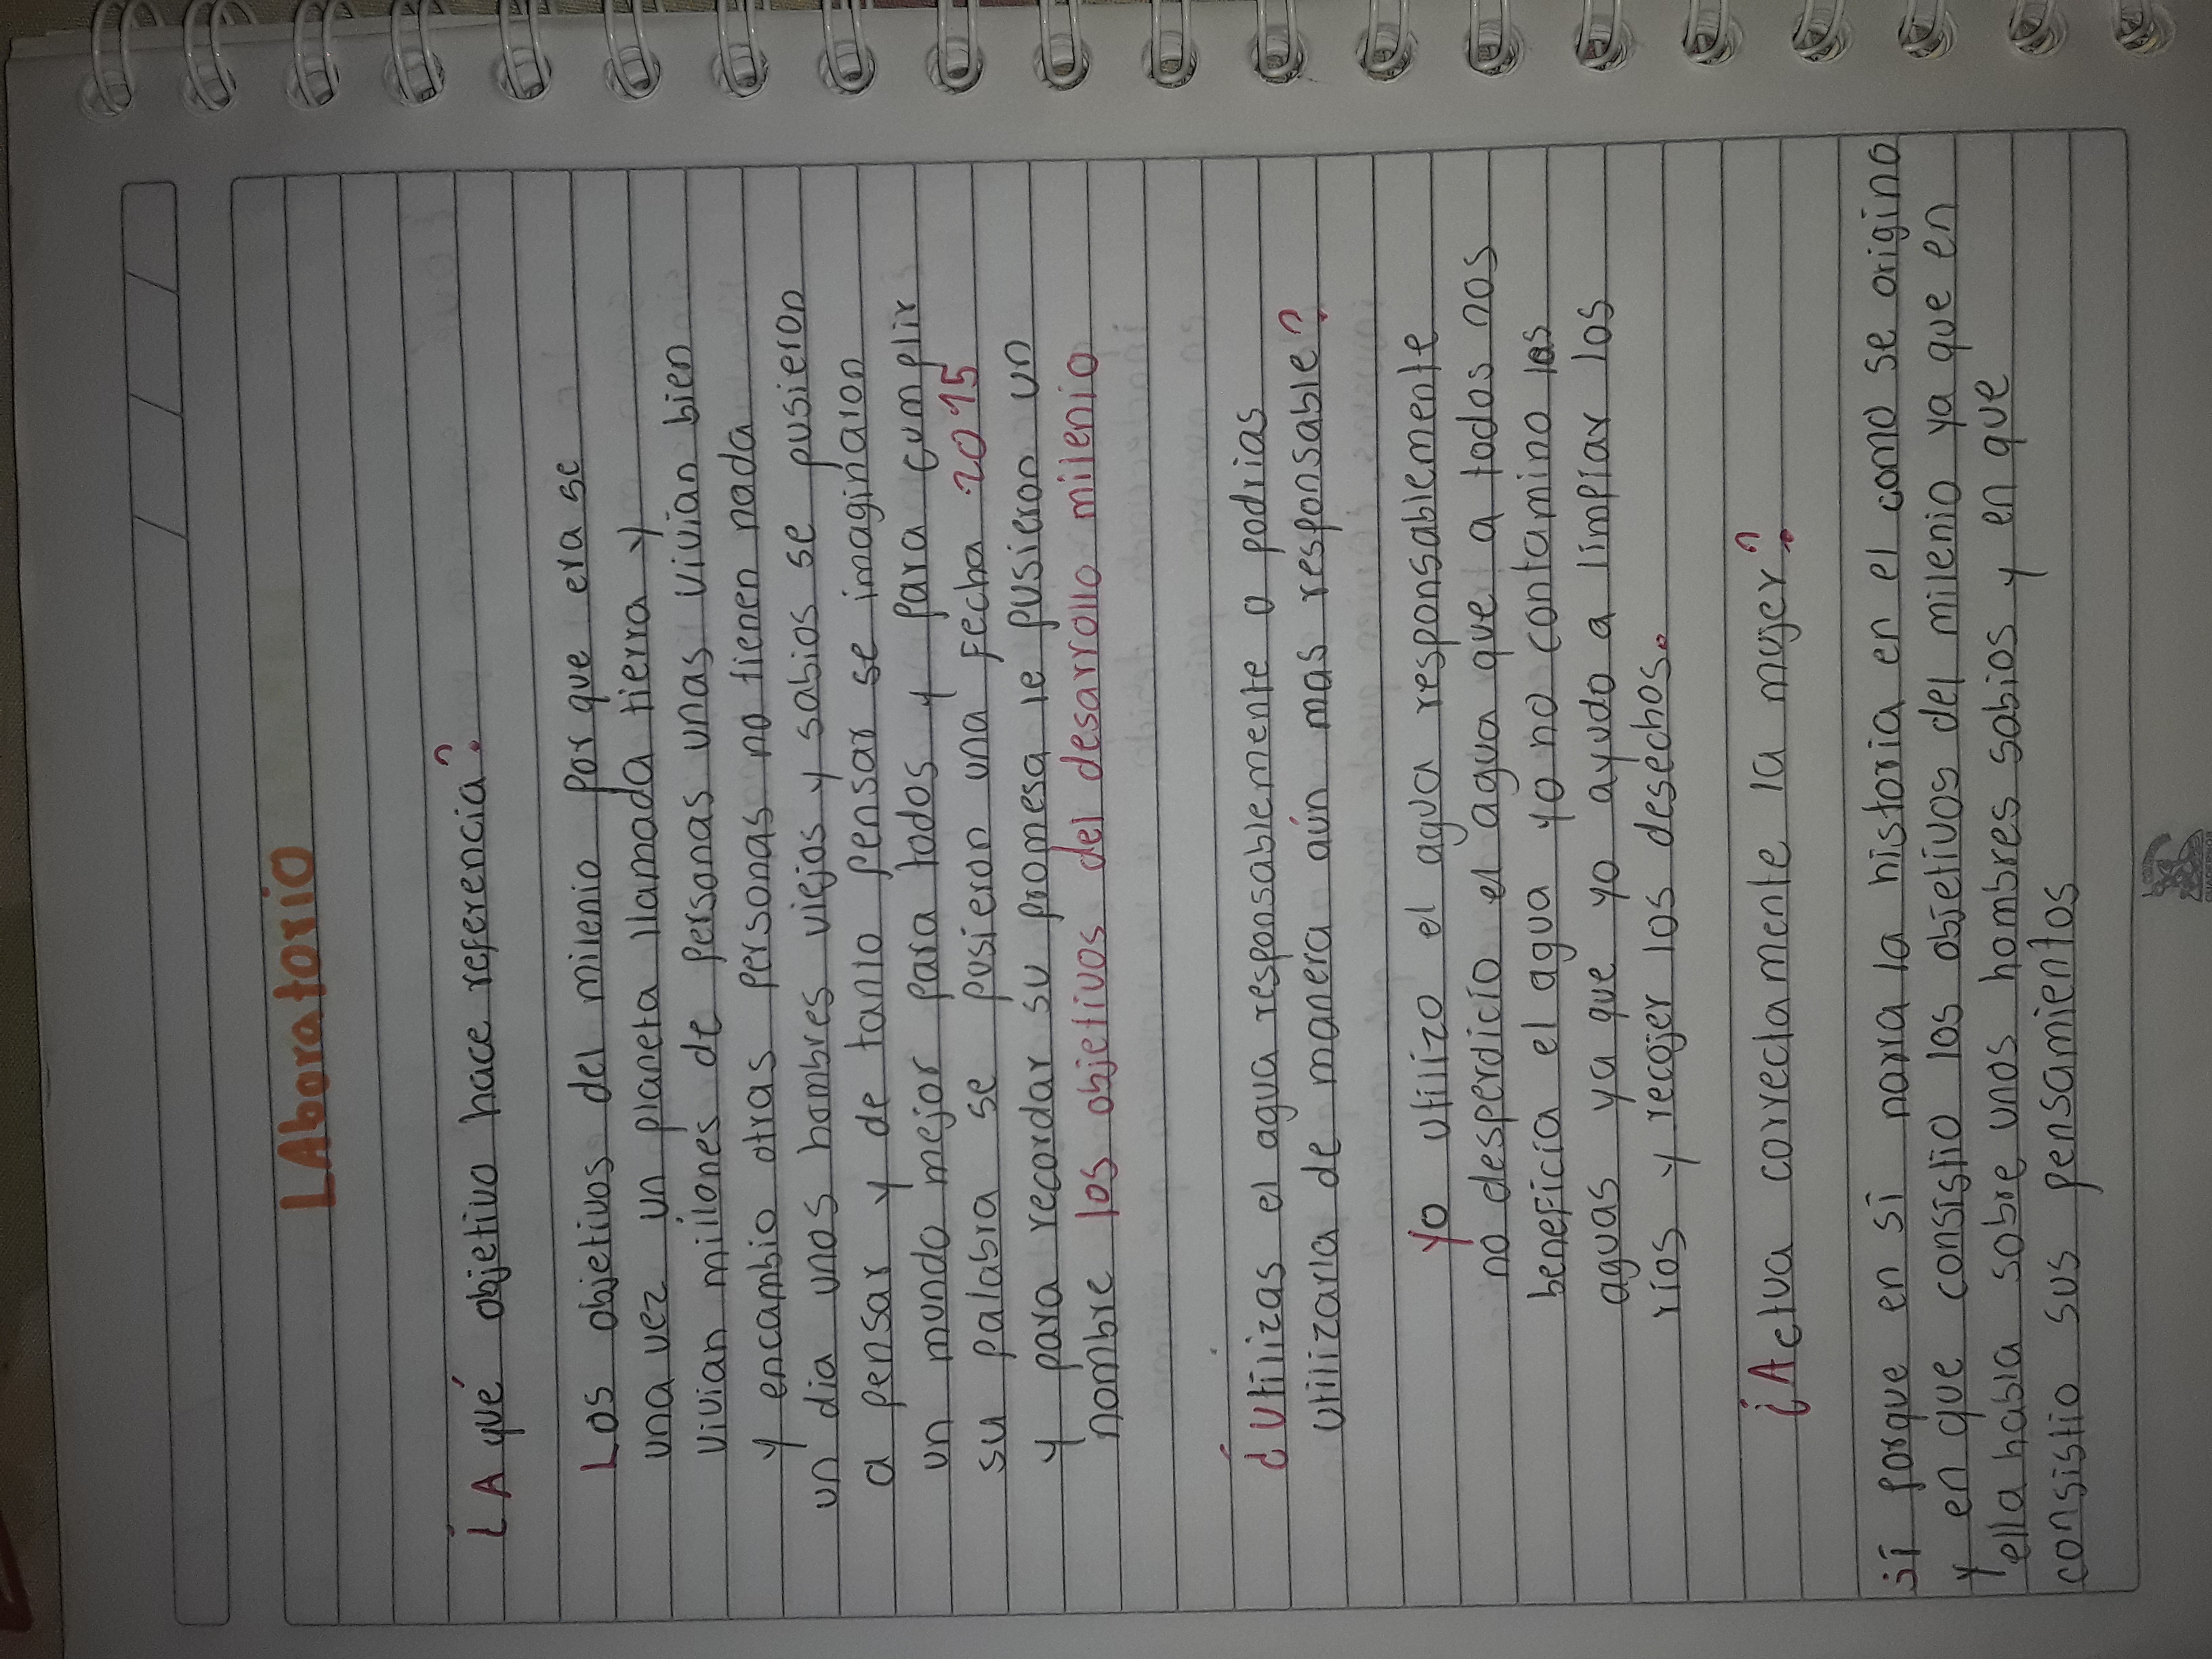 LAboratorio
¿A qué objetivo hace referencia?
Los objetivos del milenio por que era se
una vez un planeta llamada tierra y
vivian millones de personas unas vivian bien
y encambio otras personas no tienen nada
un dia unos hombres viejos y sabios se pusieron
a pensar y de tanto pensar se imaginaron
un mundo mejor para todos y para cumplir
su palabra se pusieron una Fecha 2015
y para recordar su promesa le pusieron un
nombre los objetivos del desarrollo milenio
¿Utilizas el agua responsablemente o podrias
utilizarla de manera aún mas responsable?
Yo utilizo el agua responsablemente
no desperdicio el agua que a todos nos
beneficia el agua yo no contamino las
aguas ya que yo ayudo a limpiar los
rios y recojer los desechos.
¿Actua correctamente la mujer?
si porque en si narra la historia en el como se origino
y en que consistio los objetivos del milenio ya que en
ella habla sobre unos hombres sabios y en que
consistio sus pensamientos